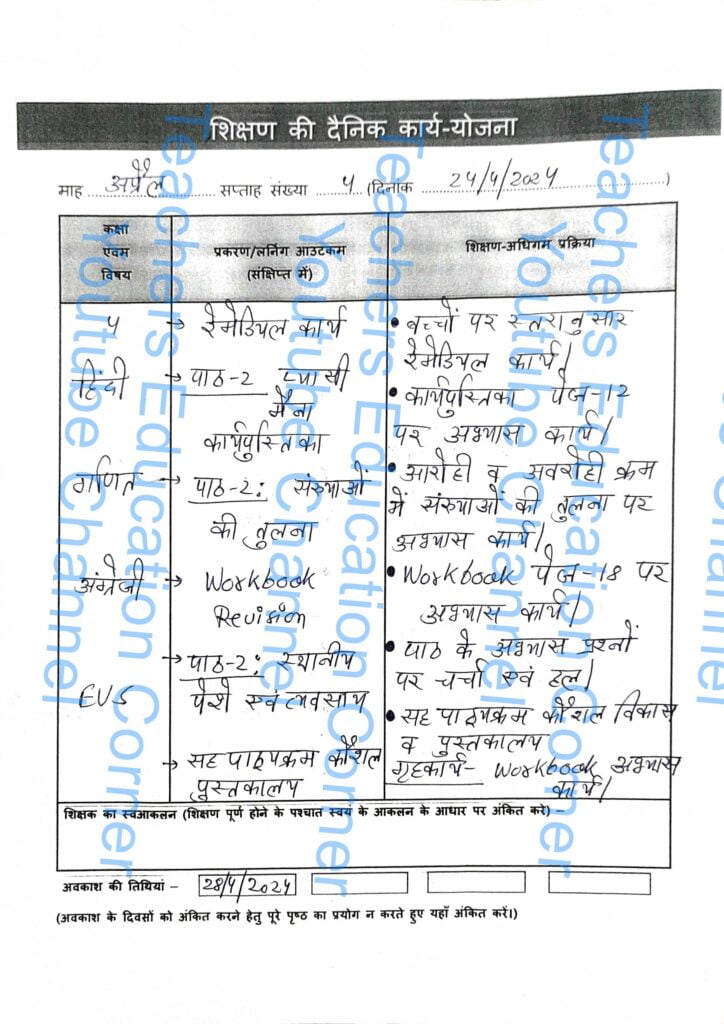 शिक्षण की दैनिक कार्य-योजना
माह अप्रैल सप्ताह संख्या 4 (दिनांक 24/4/2024)
कक्षा एवम विषय
प्रकरण/लर्निंग आउटकम (संक्षिप्त में)
शिक्षण-अधिगम प्रक्रिया
→ रेमेडियल कार्य
• बच्चों पर स्तरानुसार
रेमेडियल कार्य।
हिंदी
→ पाठ-2 प्यासी
मैना
कार्यपुस्तिका
• कार्यपुस्तिका पेज-12
पर अभ्यास कार्य।
गणित
→ पाठ-2: संख्याओं
की तुलना
• आरोही व अवरोही क्रम
में संख्याओं की तुलना पर
अभ्यास कार्य।
अंग्रेजी
→ Workbook
Revision
• Workbook पेज-18 पर
अभ्यास कार्य।
EVS
→ पाठ-2: स्थानीय
पेशे एवं व्यवसाय
• पाठ के अभ्यास प्रश्नों
पर चर्चा एवं हल।
→ सह पाठ्यक्रम कौशल
पुस्तकालय
• सह पाठ्यक्रम कौशल विकास
व पुस्तकालय
गृहकार्य- Workbook अभ्यास
कार्य।
शिक्षक का स्वआकलन (शिक्षण पूर्ण होने के पश्चात स्वयं के आकलन के आधार पर अंकित करे) –
अवकाश की तिथियां – 28/4/2024
(अवकाश के दिवसों को अंकित करने हेतु पूरे पृष्ठ का प्रयोग न करते हुए यहाँ अंकित करें।)
Teachers Education Corner
Youtube Channel
Teachers Education Corner
Youtube Channel
Teachers Education Corner
Youtube Channel